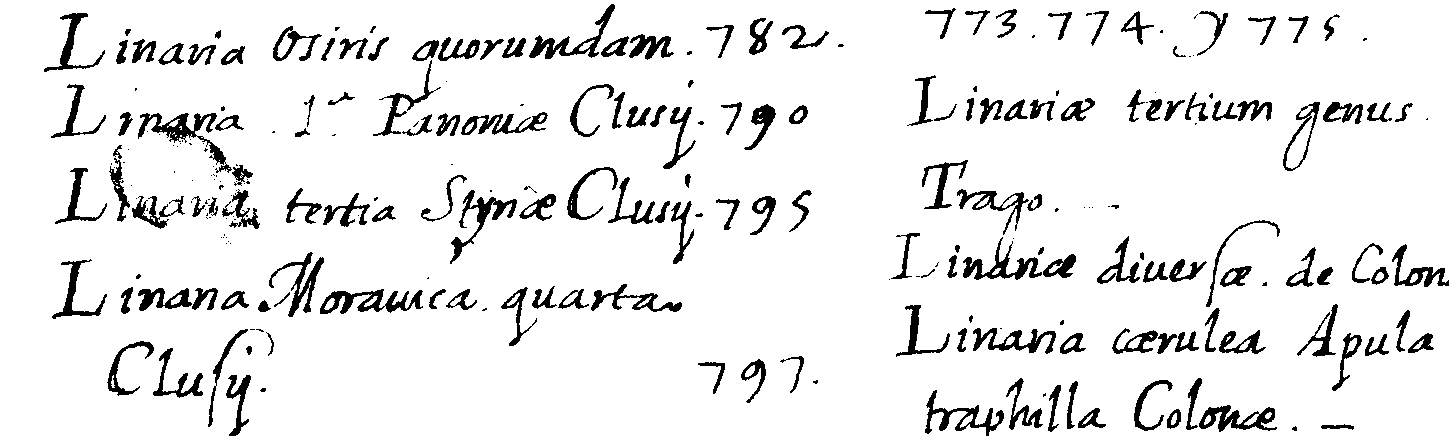 Linaria Osiris quorumdam. 782.
Linaria 1ª Panoniæ Clusij. 790
Linaria tertia Styriæ Clusij. 795
Linaria Morauica quarta
Clusij. 797.
773. 774. y 775.
Linariæ tertium genus
Trago. —
Linariæ diuersæ. de Colon
Linaria cærulea Apula
traphilla Colonæ. —